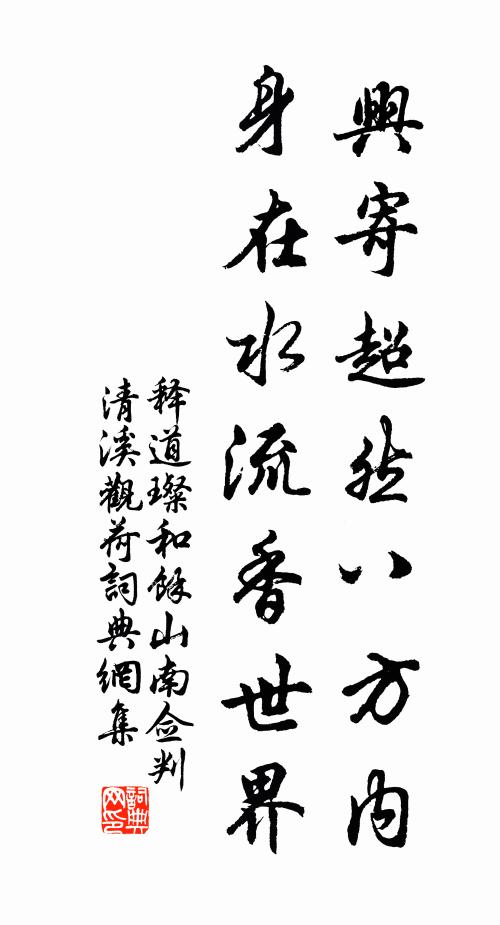 興寄超然八方內
身在水流香世界
释道璨和餘山南僉判
清溪觀荷詞典網集
詞典网印